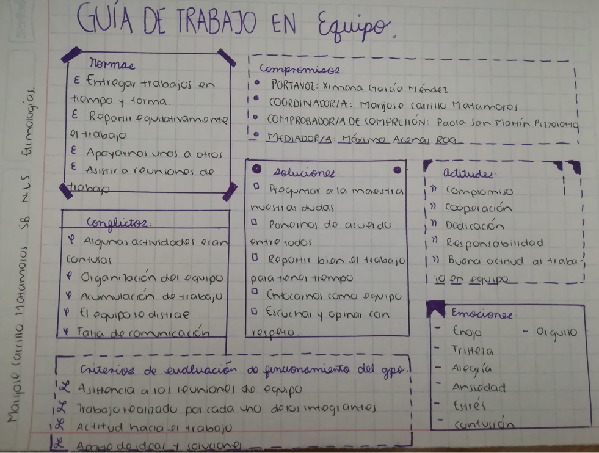 GUÍA DE TRABAJO EN Equipo.
Normas
Entregar trabajos en
tiempo y forma
Repartir equitativamente
el trabajo
Apoyarnos unos a otros
Asistir a reuniones de
trabajo
Compromisos
PORTAVOZ: Ximena García Méndez
COORDINADOR/A: Marjose Carrillo Matamoros
COMPROBADOR/A DE COMPRENSIÓN: Paola San Martín
MEDIADOR/A: Máximo
Conflictos:
Algunas actividades eran
confusas
Organización del equipo
Acumulación de trabajo
El equipo se distrae
Falta de comunicación
Soluciones
Preguntar a la maestra
nuestras dudas
Ponernos de acuerdo
entre todos
Repartir bien el trabajo
para tener tiempo
Enfocarnos como equipo
Escuchar y opinar con
respeto
actitudes
Compromiso
Cooperación
Dedicación
Responsabilidad
Buena actitud al traba-
jo en equipo
Emociones
- Enojo - Orgullo
- Tristeza
- Alegría
- Ansiedad
- Estrés
- Confusión
Criterios de evaluación de funcionamiento del gpo.
Asistencia a las reuniones de equipo
Trabajo realizado por cada uno de los integrantes
Actitud hacia el trabajo
de ideas y soluciones
Marjose Carrillo Matamoros 5B NL5 Etimologías